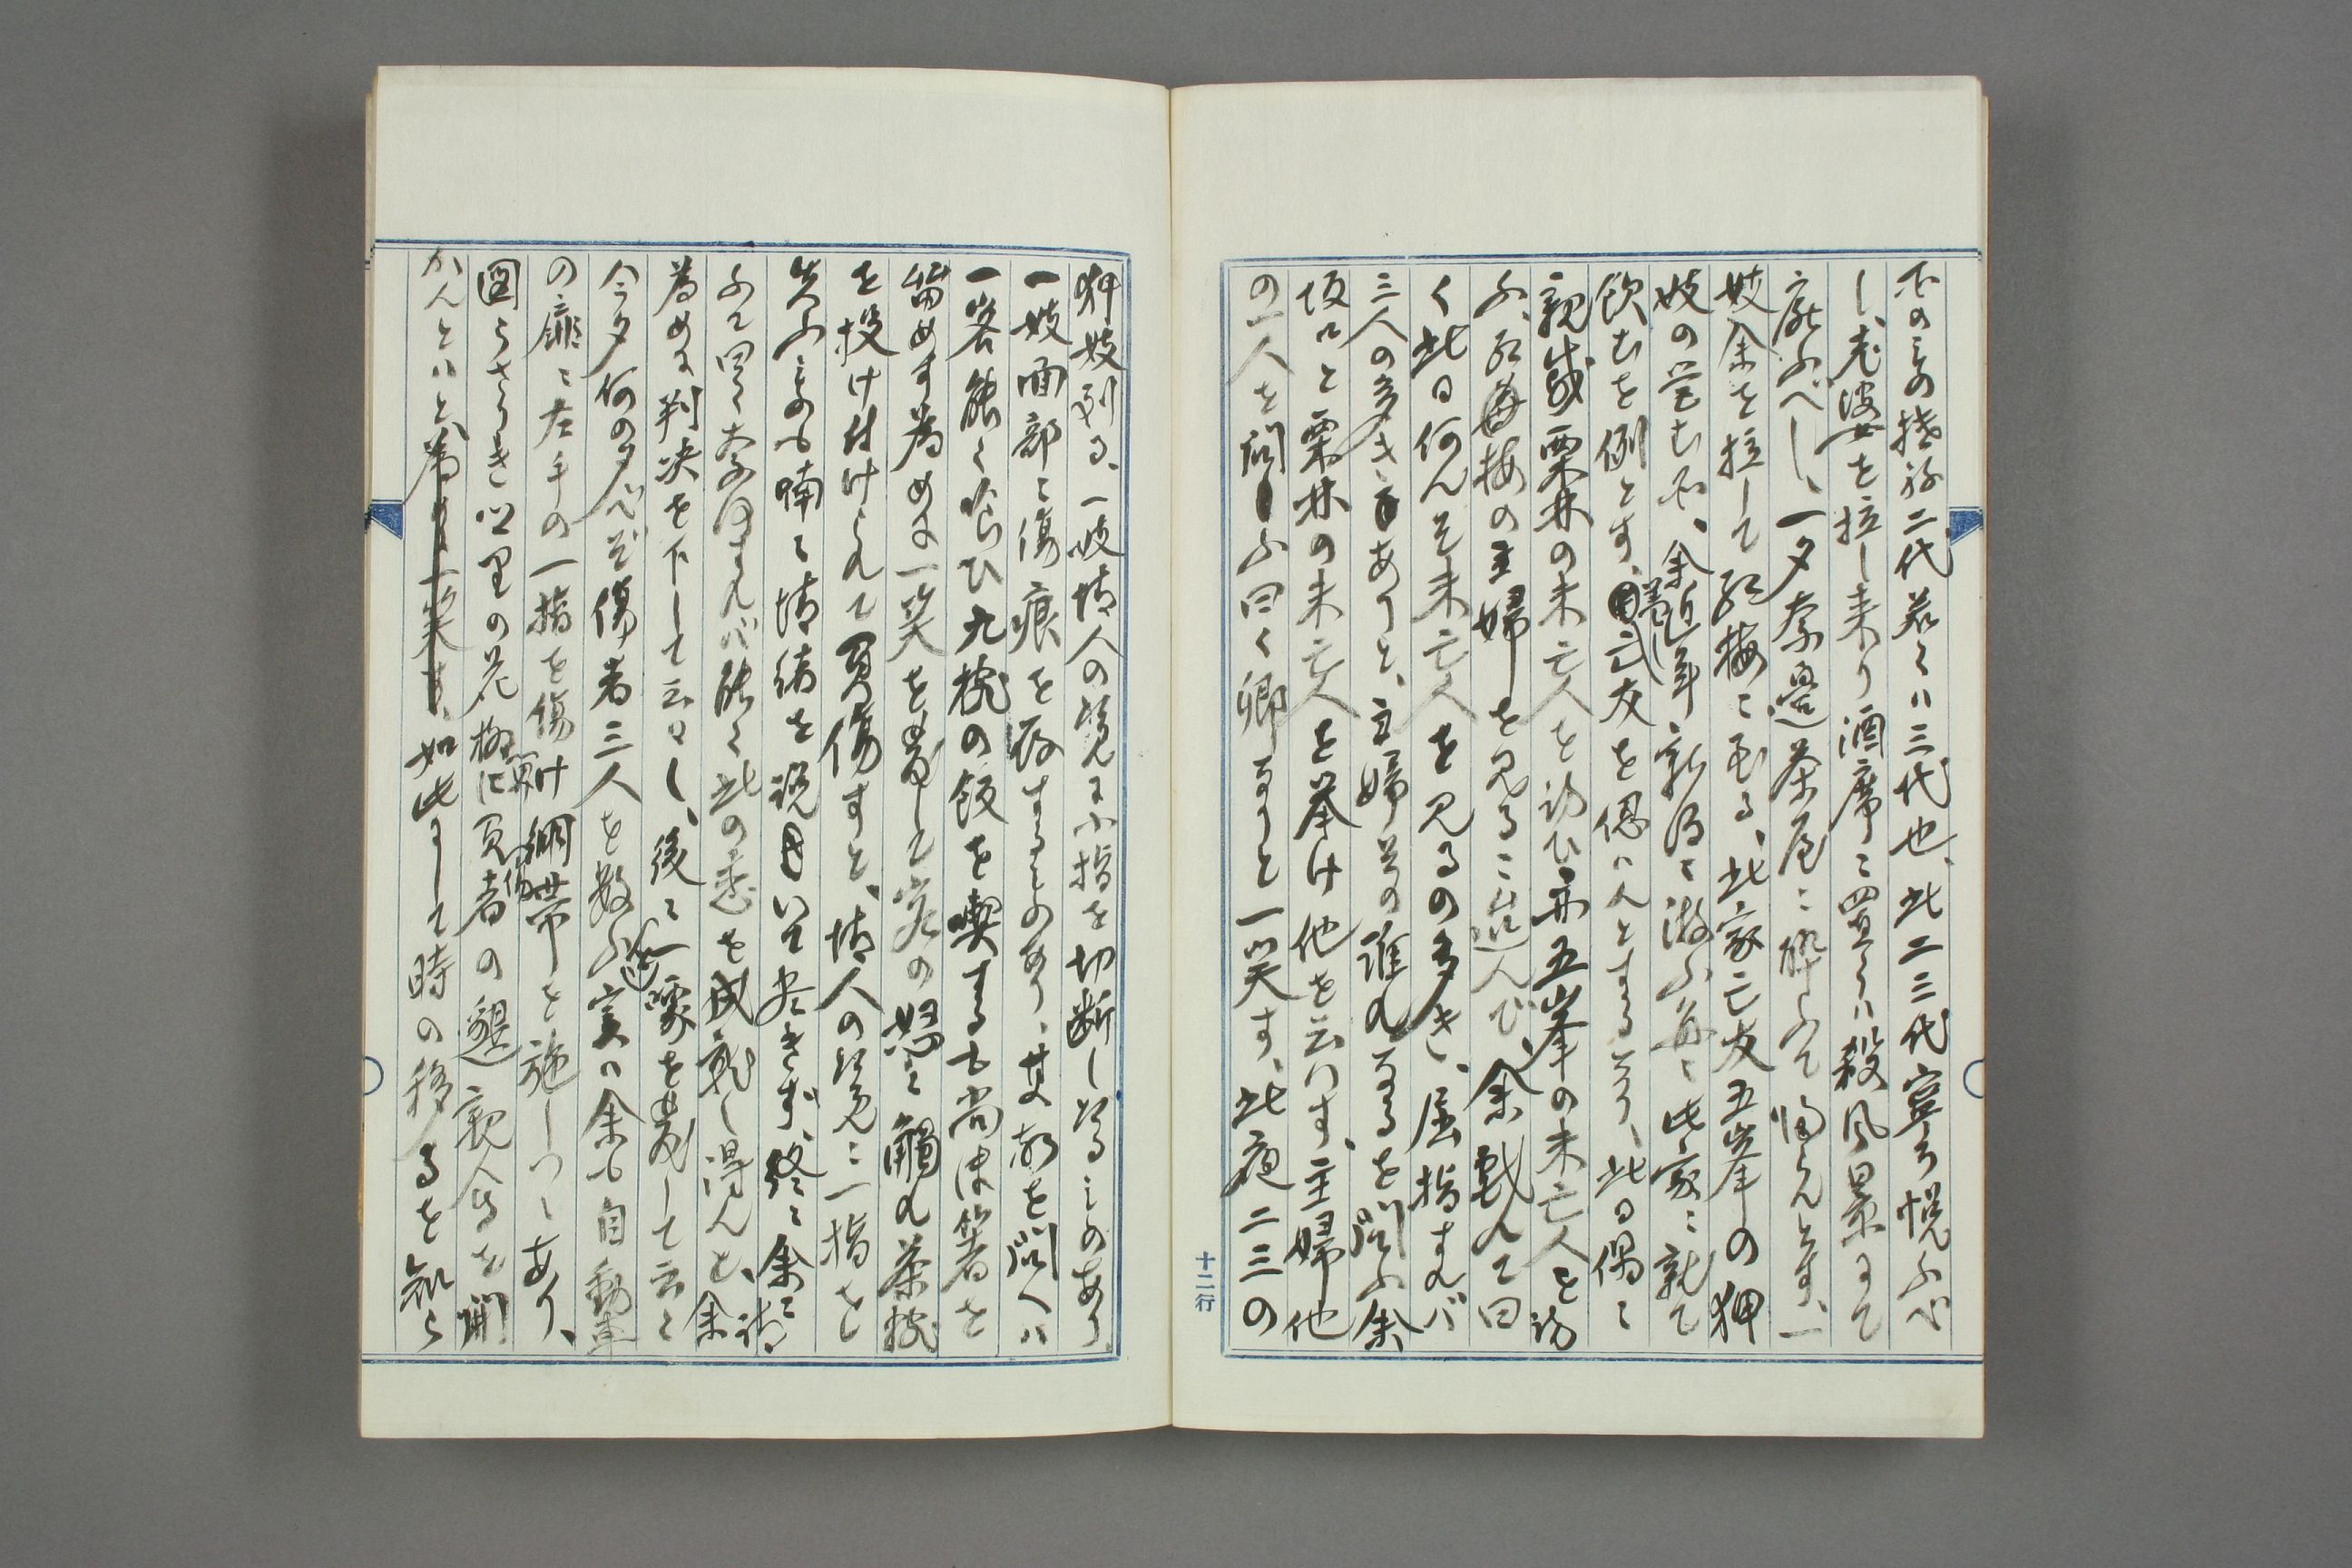 のミの孫二代若くハ三代也、此二三代寧ろ悦ふべ
し、老婆を拉し来り酒席ニ置くハ殺風景にて
厭ふべし、一夕奈邊茶屋ニ酔ふて帰らんとす、一
妓余を拉して紅梅ニ至る、此家亡友五峯の狎
妓の営む所、余近年新潟ニ游ふ毎ニ此家ニ就て
飲むを例とす、蓋し亡友を偲ハんとするなり、此日偶々
親戚栗林の未亡人を訪ひ亦五峯の未亡人を訪
ふ、紅梅の主婦を見るニ及んで、余戯れて曰
く此日何んぞ未亡人を見るの多き、屈指すれバ
三人の多きありと、主婦其の誰れなるを問ふ余
坂口と栗林の未亡人を挙け他を云はす、主婦他
の一人を問ふ曰く卿なりと一笑す、此夜二三の
狎妓到る、一妓情人の為に小指を切断し居るものあり
一妓面部ニ傷痕を存するものあり、其故を問へハ
一客能く喰ひ九椀の飯を喫するも尚ほ箸を
留めす為めに一笑を発して客の怒ニ觸れ茶椀
を投け付けられて負傷すと、情人の為ニ一指を
失ふもの喃々情緒を説いて尽きず、終ニ余ニ請
ふて曰く大なすれバ能く此の恋を成就し得んと、余
為めに判决を下して云ひし、後ニ一噱を発して云く
今夕何の夕べぞ傷者三人を数ふ、実ハ余も自動車
の扉ニ左手の一指を傷け繃帯を施しつゝあり、
図らさりき此里の花柳ニ負傷者の懇親会を開
かんとハと、如此にして時の移るを知ら